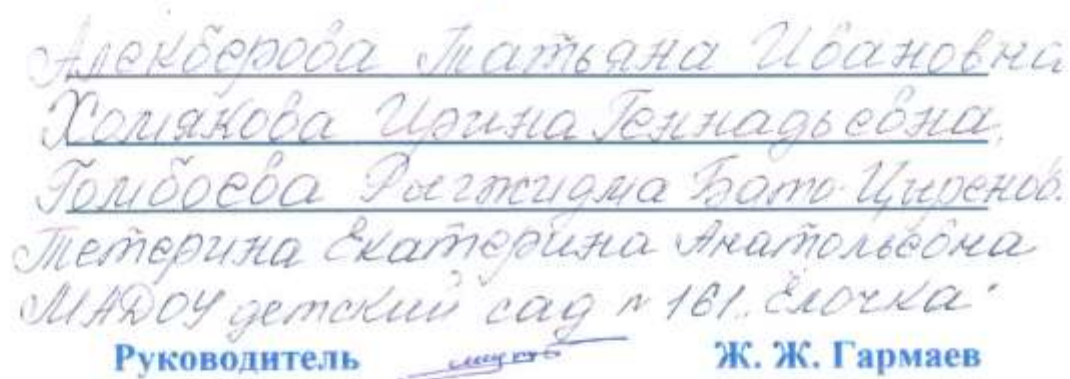 Алекберова Татьяна Ивановна
Хомякова Ирина Геннадьевна,
Гомбоева Рыгжидма Бато-Циренов.
Тетерина Екатерина Анатольевна
МАДОУ детский сад № 161 „Ёлочка"
Руководитель Ж. Ж. Гармаев